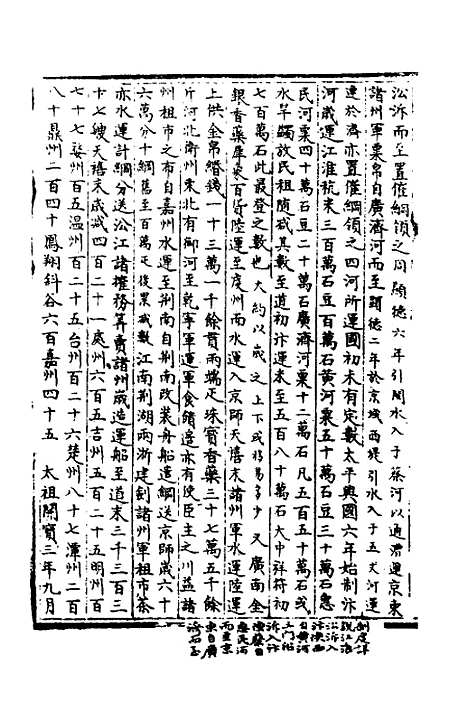 汴泝而至置催綱領之同顯德六年引閔水入于蔡河以通漕運京東
諸州軍粟帛自廣濟河而至顯德二年於京城西堤引水入于五丈河運
達於濟亦置催綱領之四河所運國初未有定數太平興國六年始制汴
河歲運江淮秔米三百萬石豆百萬石黃河粟五十萬石豆三十萬石惠
民河粟四十萬石豆二十萬石廣濟河粟十二萬石凡五百五十萬石或
水旱蠲放民租隨減其數至道初汴運米至五百八十萬石大中祥符初
七百萬石此最登之數也 大約以歲之上下或移易多少 又廣南金
銀香藥犀象百貨陸運至虔州而水運入京師天禧末諸州軍水運陸運
上供金帛緡錢一十三萬一千餘貫兩端疋珠寶香藥三十七萬五千餘
斤河北衛州東北有御河至乾寧軍運軍食館邊亦有使臣主之川益諸
州租市之布自嘉州水運至荆南自荆南改裝舟船造綱送京師歲六十
六萬分十綱舊至百萬疋後累減數江南荆湖兩浙建劍諸州軍租市茶
亦水運計綱分送沿江諸榷務筭賣諸州歲造運船至道末三千三百三
十七艘天禧末減四百二十一處州六百五吉州五百二十五明州百
七十七婺州百五溫州百二十五台州百二十六楚州八十七潭州二百
八十鼎州二百四十鳳翔斜谷六百嘉州四十五 太祖開寶三年九月